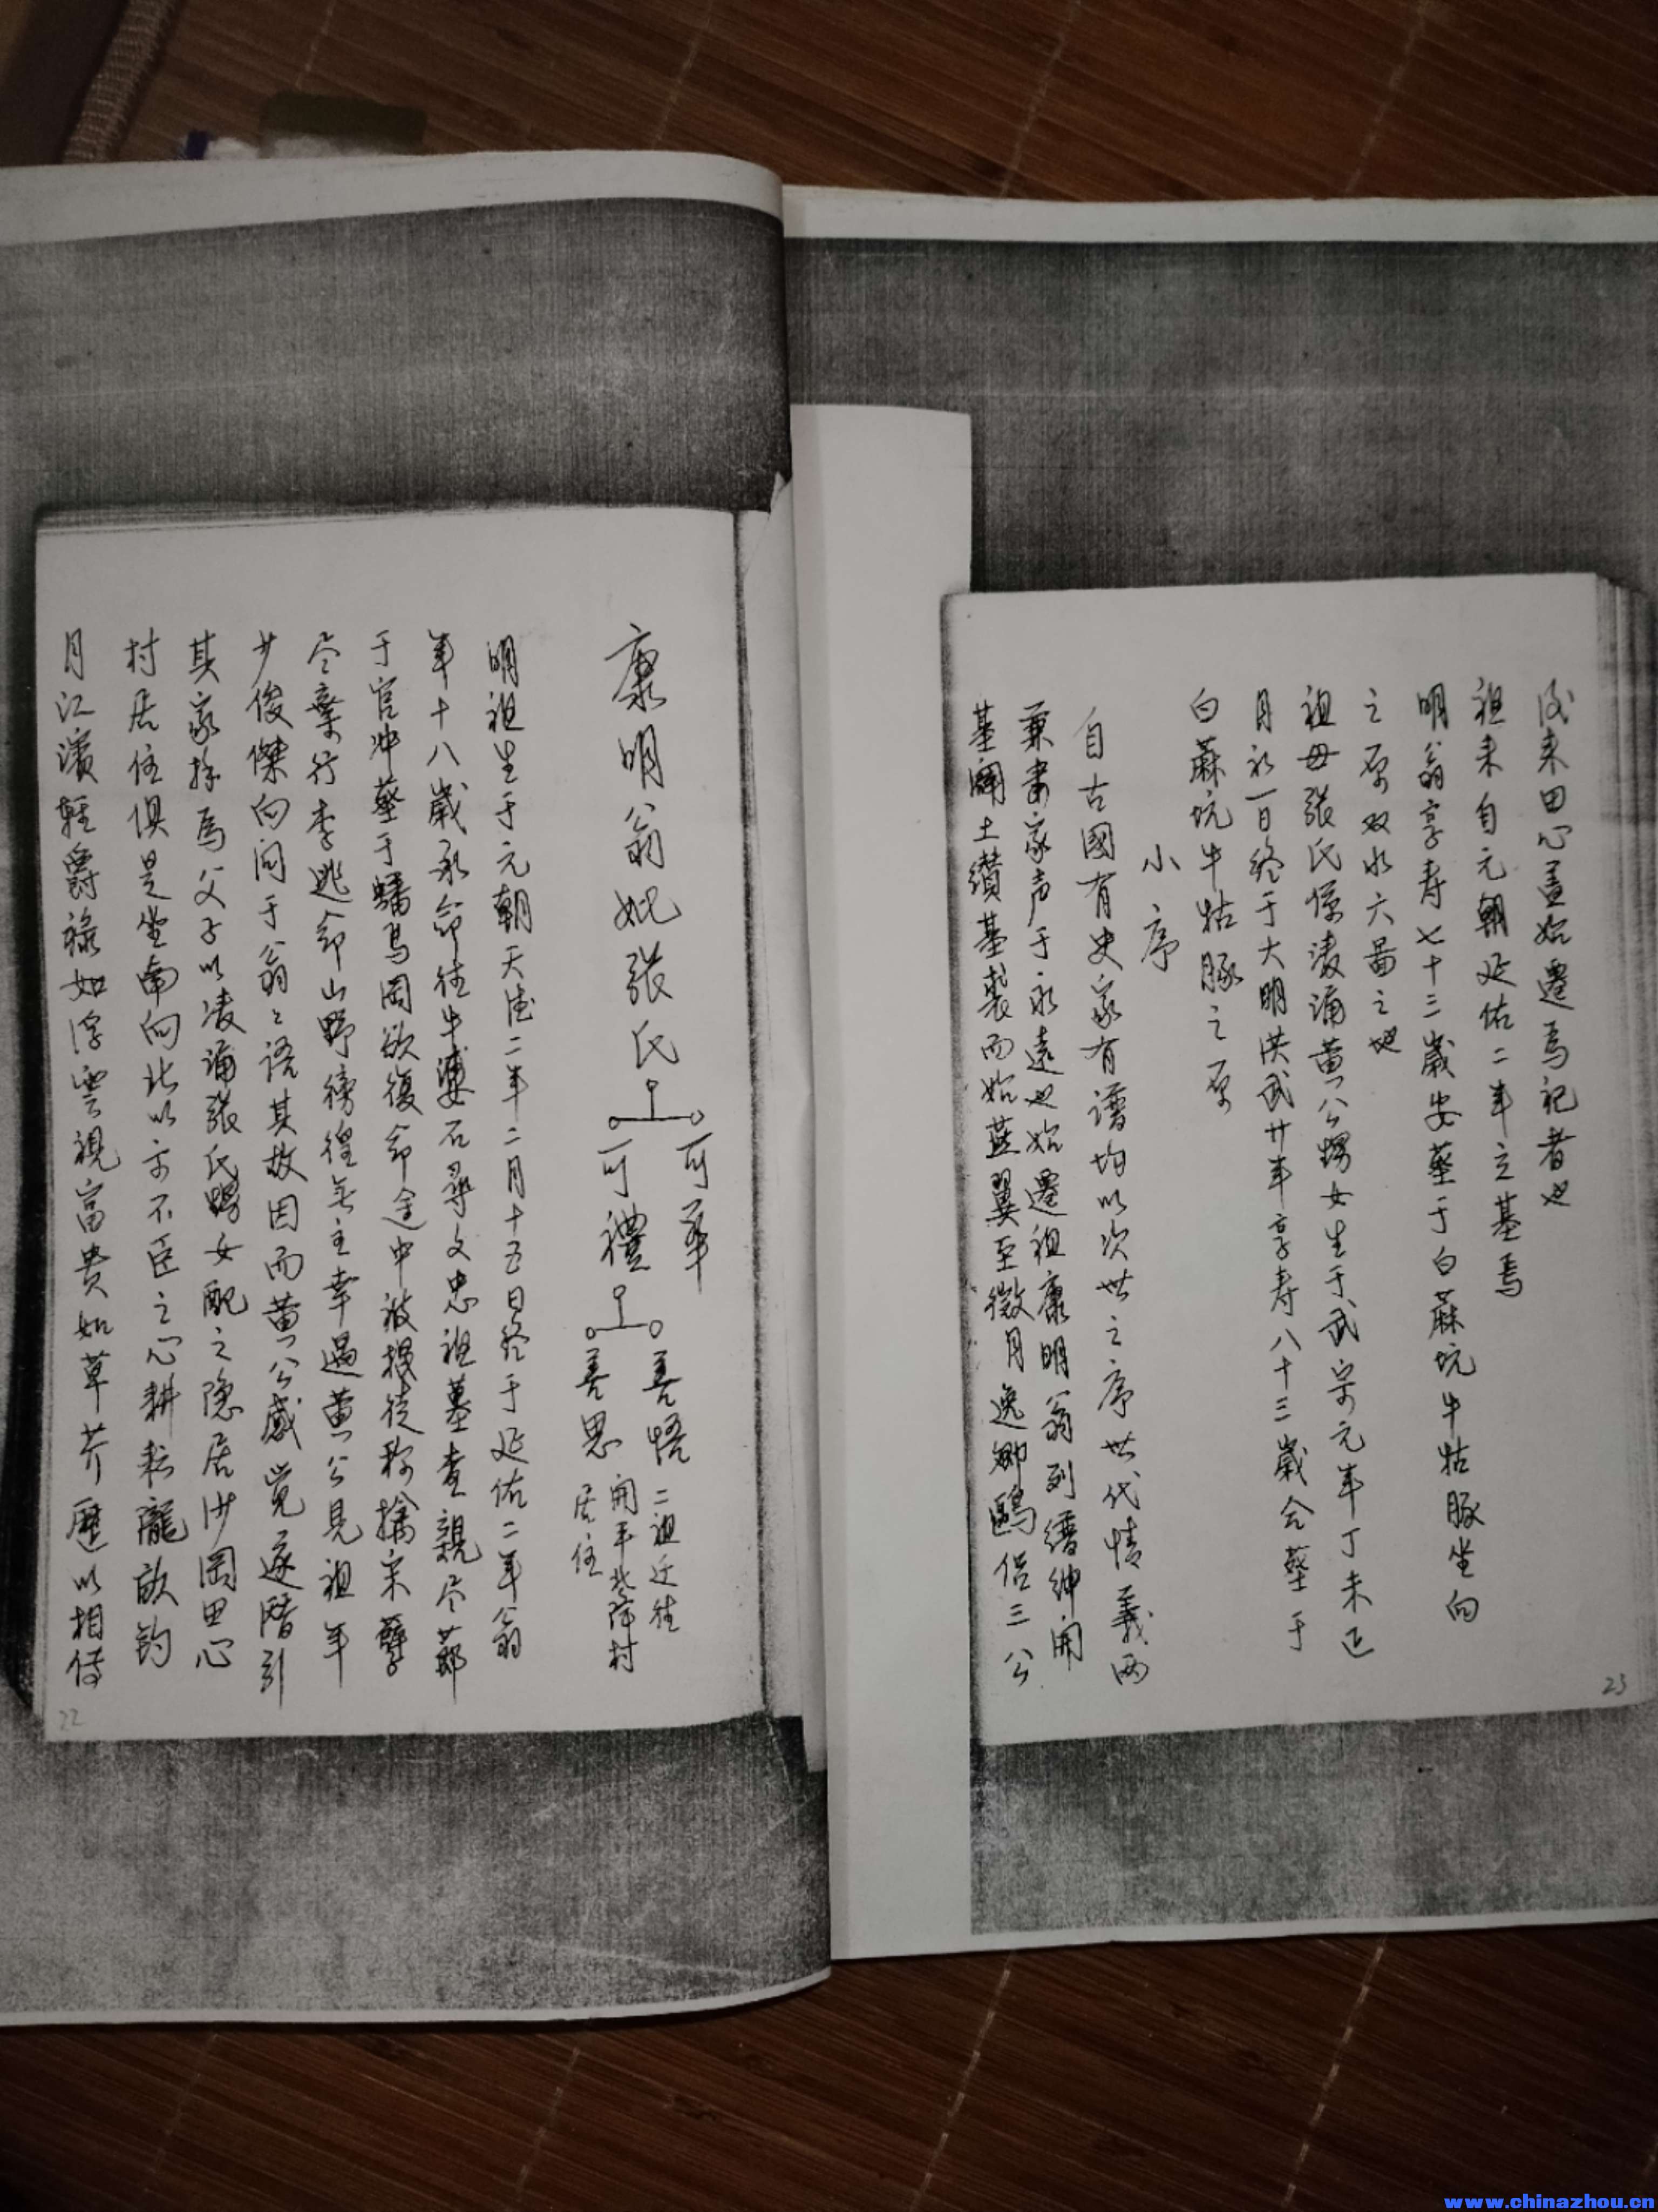 康明翁妣張氏
可華
可禮
善悟
善思
二祖迁往
開平北降村
居住
明祖生于元朝天德二年二月十五日终于延佑二年翁
年十八歲承命往牛婆石尋文忠祖墓查親尽薌
于官冲墓于蟠鳥岡欲復命途中被揌徒称擒宋孽
尽棄行李逃命山野徬徨無主幸遇黄公見祖年
少俊傑向问于翁翁語其故因而黄公感覚逐陪引
其家拴為父子以凌涌張氏甥女配之隐居沙岡田心
村居住俱是坐南向北以示不臣之心耕耘隴畝钓
月江濱輕爵祿如浮雲視富贵如草芥歷以相傳
22
成来田心蓋始遷焉記者也
祖来自元朝延佑二年立基焉
明翁享寿七十三歲安墓于白蔴坑牛牯豚坐向
之原双水六啚之地
祖母張氏係凌涌黄公甥女生于武宗元年丁未正
月初一日终于大明洪武廿年享寿八十三歲合墓于
白蔴坑牛牯豚之原
小序
自古國有史家有谱均以次世之序世代情義两
兼書家声于永遠也始遷祖康明翁列缙绅開
基闢土纘基裘而始燕翼至徽月逸鄉鷗侣三公
23
www.chinazhou.cn